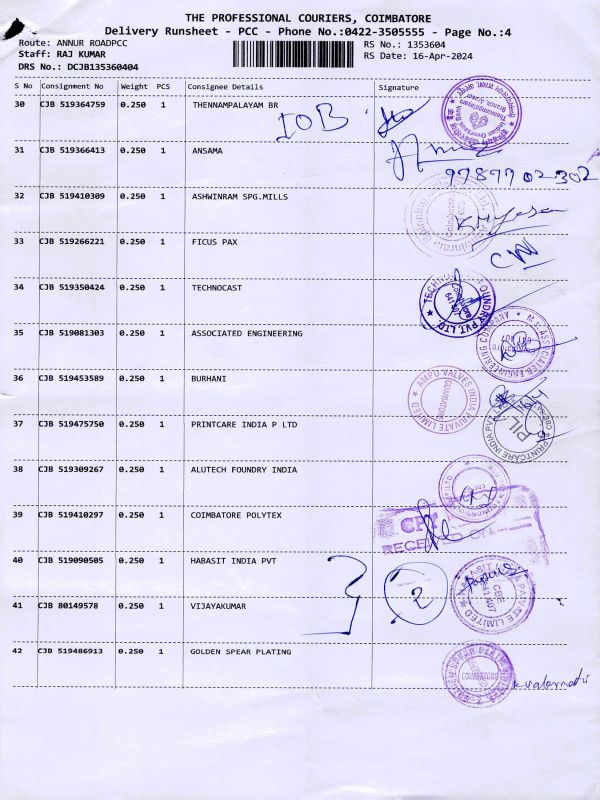 THE PROFESSIONAL COURIERS, COIMBATORE
Delivery Runsheet - PCC - Phone No.:0422-3505555 - Page No.:4
Route: ANNUR ROADPCC RS No.: 1353604
Staff: RAJ KUMAR RS Date: 16-Apr-2024
DRS No.: DCJB135360404
S No Consignment No Weight PCS Consignee Details Signature
30 CJB 519364759 0.250 1 THENNAMPALAYAM BR IOB
31 CJB 519366413 0.250 1 ANSAMA
9787702302
32 CJB 519410309 0.250 1 ASHWINRAM SPG.MILLS
33 CJB 519266221 0.250 1 FICUS PAX
34 CJB 519350424 0.250 1 TECHNOCAST
35 CJB 519081303 0.250 1 ASSOCIATED ENGINEERING
36 CJB 519453589 0.250 1 BURHANI
AMPO VALVES INDIA PRIVATE LIMITED
37 CJB 519475750 0.250 1 PRINTCARE INDIA P LTD
PIL
PRINTCARE INDIA PVT
38 CJB 519309267 0.250 1 ALUTECH FOUNDRY INDIA
39 CJB 519410297 0.250 1 COIMBATORE POLYTEX
CPT
40 CJB 519090505 0.250 1 HABASIT INDIA PVT
2
41 CJB 80149578 0.250 1 VIJAYAKUMAR
42 CJB 519486913 0.250 1 GOLDEN SPEAR PLATING